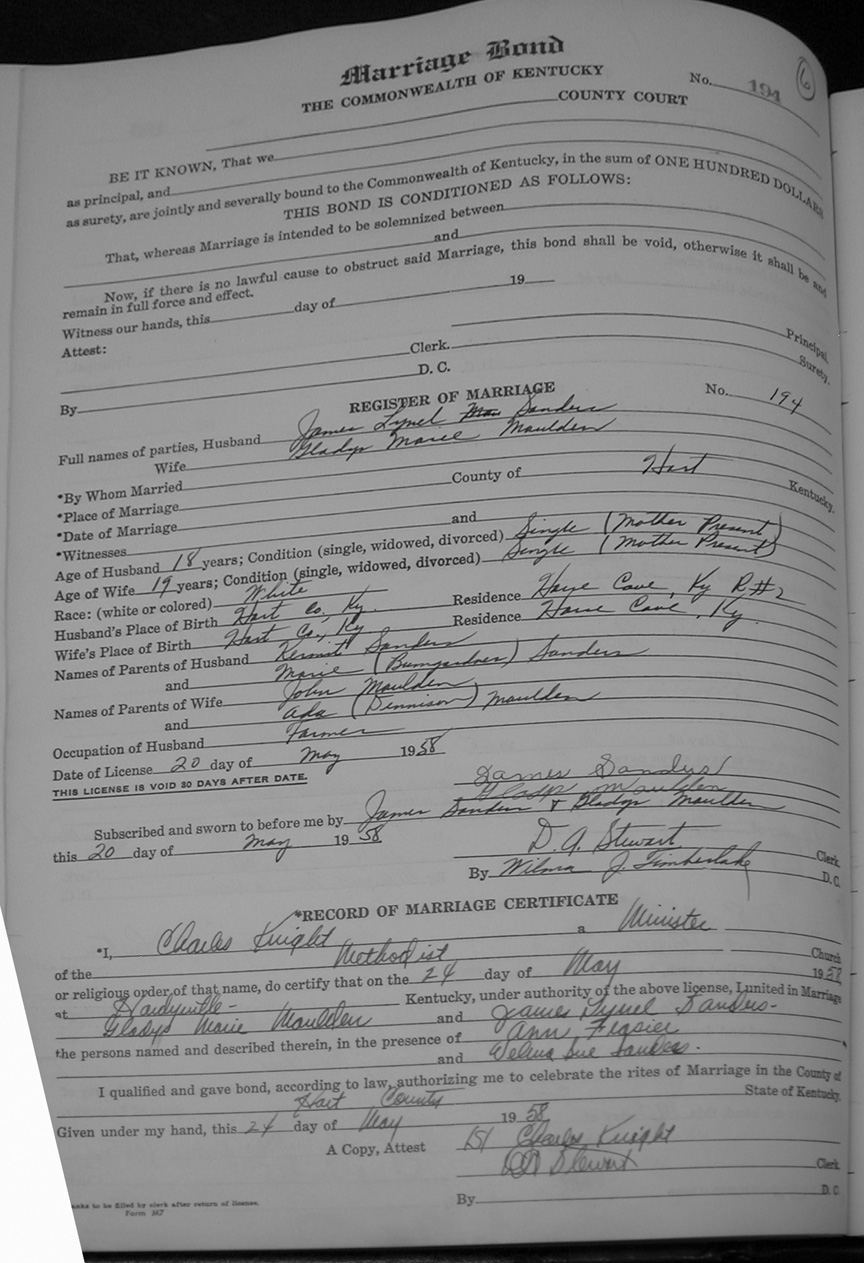 Marriage Bond
THE COMMONWEALTH OF KENTUCKY
No. 194 6
COUNTY COURT
BE IT KNOWN, That we
as principal, and
as surety, are jointly and severally bound to the Commonwealth of Kentucky, in the sum of ONE HUNDRED DOLLARS
THIS BOND IS CONDITIONED AS FOLLOWS:
That, whereas Marriage is intended to be solemnized between
and
Now, if there is no lawful cause to obstruct said Marriage, this bond shall be void, otherwise it shall be and
remain in full force and effect.
Witness our hands, this day of 19
Attest: Principal.
Clerk. Surety.
By D. C.
REGISTER OF MARRIAGE No. 194
Full names of parties, Husband James Lynel Sanders
Wife Gladys Marie Maulden
*By Whom Married
*Place of Marriage County of Hart Kentucky.
*Date of Marriage
*Witnesses and
Age of Husband 18 years; Condition (single, widowed, divorced) Single (Mother Present)
Age of Wife 19 years; Condition (single, widowed, divorced) Single (Mother Present)
Race: (white or colored) White
Husband's Place of Birth Hart Co. Ky. Residence Cave, Ky R.#2
Wife's Place of Birth Hart Co., Ky Residence Cave, Ky.
Names of Parents of Husband Kermit Sanders
and Marie (Bumgardner) Sanders
Names of Parents of Wife John Maulden
and Ada (Dennison) Maulden
Occupation of Husband Farmer
Date of License 20 day of May 1958
THIS LICENSE IS VOID 30 DAYS AFTER DATE.
James Sanders
Gladys Maulden
Subscribed and sworn to before me by James Sanders & Gladys Maulden
this 20 day of May 19 58
D. A. Stewart Clerk
By Wilma J. Timberlake D. C.
*RECORD OF MARRIAGE CERTIFICATE
*I, Charles Knight a Minister
of the Methodist Church
or religious order of that name, do certify that on the 24 day of May 1958
at Hardyville- Kentucky, under authority of the above license, I united in Marriage
Gladys Marie Maulden and James Lynel Sanders-
the persons named and described therein, in the presence of Ann Frasier
and Velma Sue Sanders.
I qualified and gave bond, according to law, authorizing me to celebrate the rites of Marriage in the County of
Hart County State of Kentucky.
Given under my hand, this 24 day of May 19 58
A Copy, Attest /s/ Charles Knight
DA Stewart Clerk
By D. C.
to be filled by clerk after return of license.
Form 367